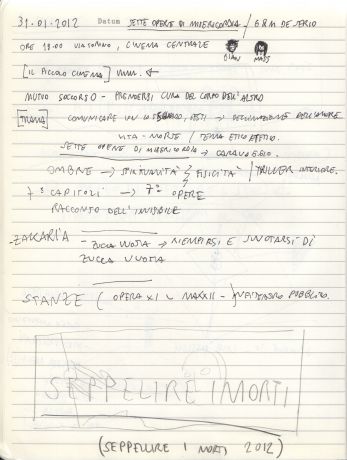 31-01-2012 Datum SETTE OPERE DI MISERICORDIA / G.R.M DE SERIO
ORE 19:00 VIA SOMINO, CINEMA CENTRALE
GIAN MASS
[IL PICCOLO CINEMA]
MUTUO SOCCORSO - PRENDERSI CURA DEL CORPO DELL'ALTRO
[TRAMA] COMUNICARE
VITA - MORTE / TEMA ETICO
SETTE OPERE DI MISERICORDIA → CARAVAGGIO.
OMBRE → SPIRITUALITÀ FISICITÀ / THRILLER INTERIORE.
7 CAPITOLI → 7 OPERE
RACCONTO DELL'INVISIBILE
- ZAKARIA - ZUCCA VUOTA → RIEMPIRSI E SVUOTARSI DI
ZUCCA VUOTA
STANZE ( OPERA XI MAXXII - PUBBLICO.
SEPPELIRE I MORTI
(SEPPELLIRE I MORTI 2012)